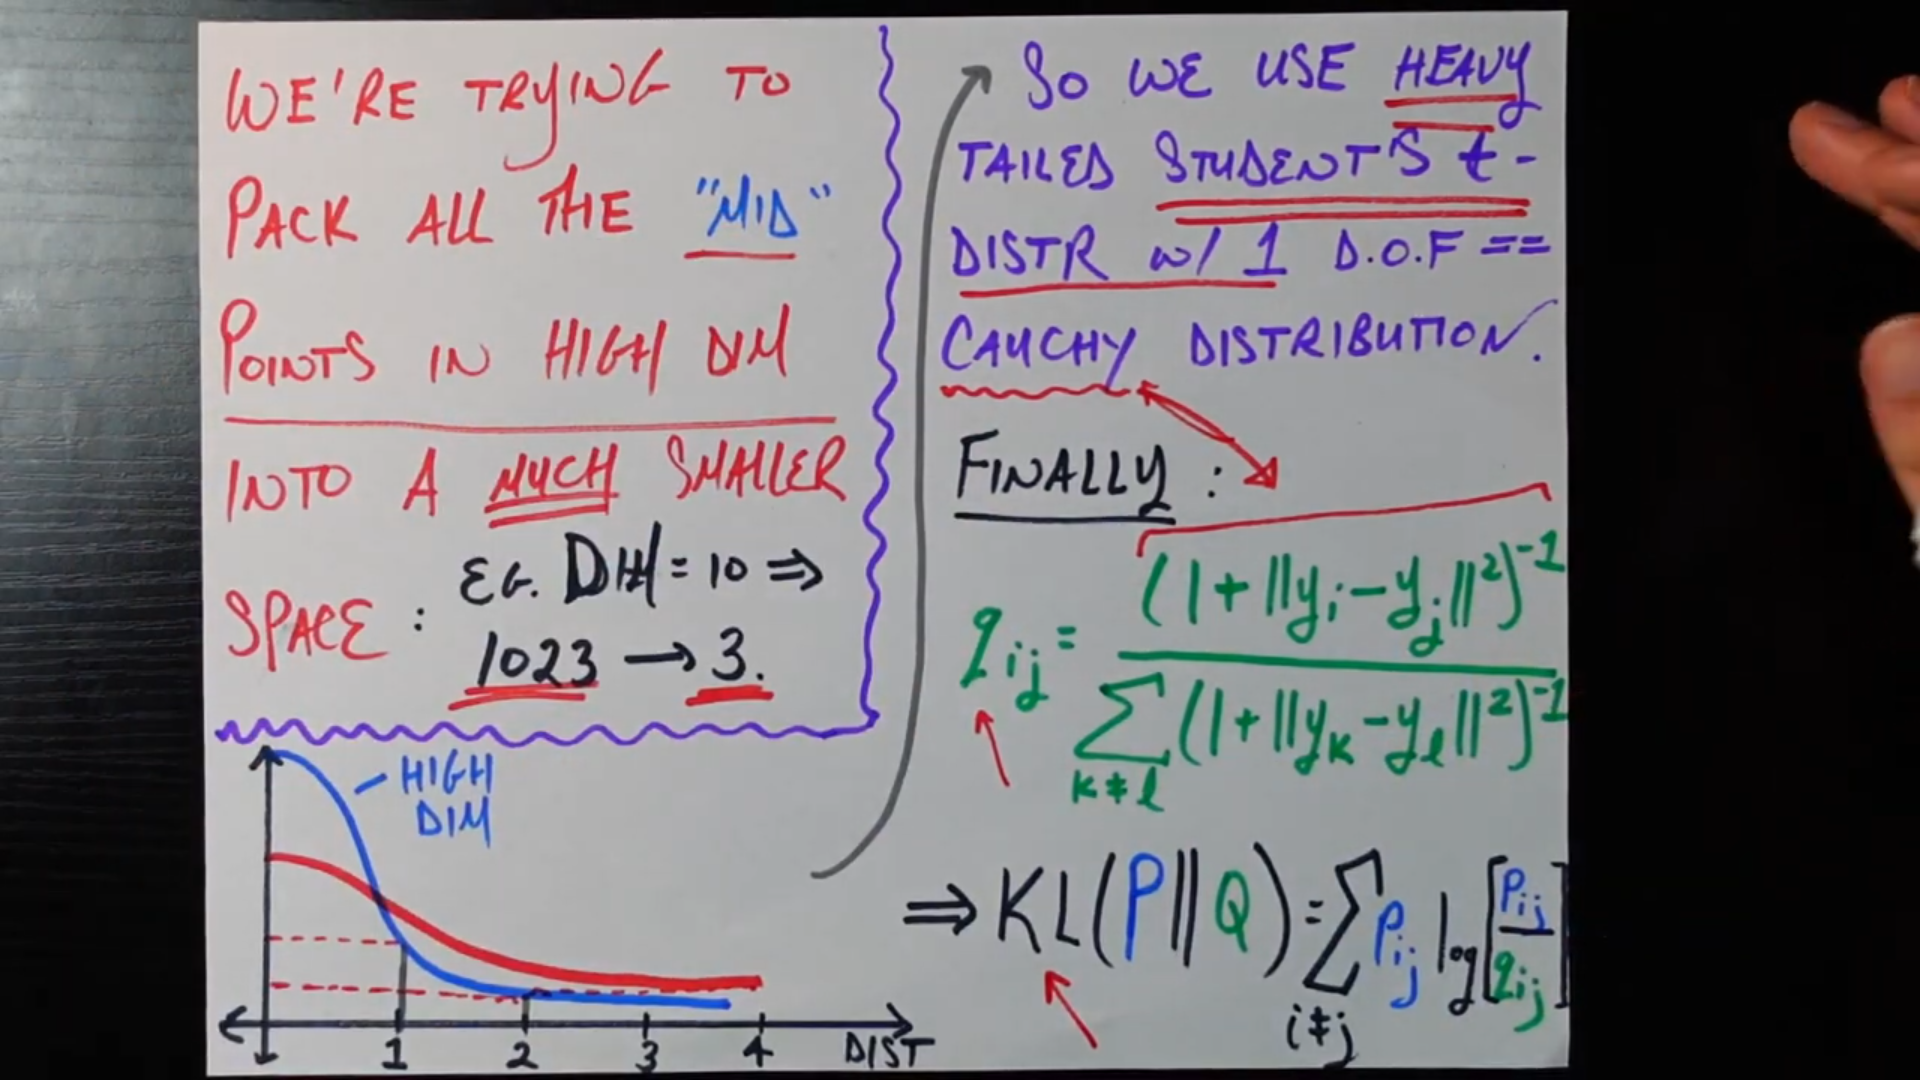 WE'RE TRYING TO
PACK ALL THE "MID"
POINTS IN HIGH DIM
INTO A MUCH SMALLER
SPACE: EG. DIM = 10 ⇒
1023 → 3.
HIGH
DIM
1 2 3 4 DIST
SO WE USE HEAVY
TAILED STUDENT'S t-
DISTR w/ 1 D.O.F ==
CAUCHY DISTRIBUTION.
FINALLY:
q_ij = (1 + ||y_i - y_j||²)^-1 / Σ_{k≠l} (1 + ||y_k - y_l||²)^-1
⇒ KL(P||Q) = Σ_{i≠j} p_ij log[p_ij / q_ij]